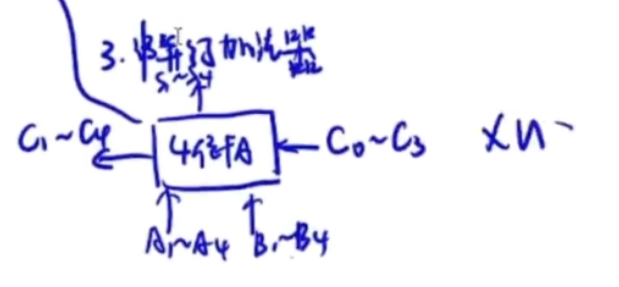 3. 串并行加法器
S₁~S₄
C₁~C₄ 4位FA C₀~C₃ ×n个
A₁~A₄ B₁~B₄